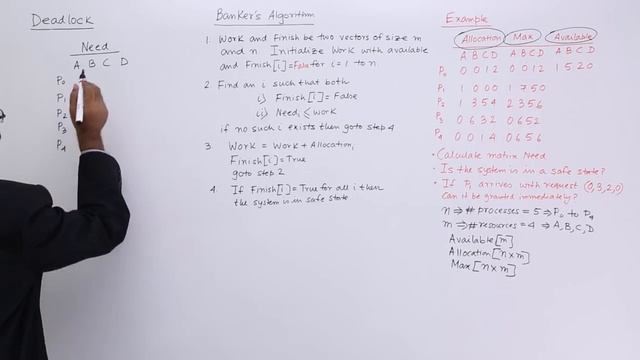 Deadlock
Need
A B C D
P0
P1
P2
P3
P4
Banker's Algorithm
1. Work and Finish be two vectors of size m
and n. Initialize Work with available
and Finish[i]=False for i = 1 to n
2. Find an i such that both
(i) Finish[i] = False
(ii) Needi ≤ work
if no such i exists then goto step 4
3 Work = Work + Allocationi
Finish[i] = True
goto step 2
4. If Finish[i] = True for all i then
the system is in safe state
Example
Allocation Max Available
A B C D A B C D A B C D
P0 0 0 1 2 0 0 1 2 1 5 2 0
P1 1 0 0 0 1 7 5 0
P2 1 3 5 4 2 3 5 6
P3 0 6 3 2 0 6 5 2
P4 0 0 1 4 0 6 5 6
• Calculate matrix Need
• Is the system is in a safe state?
• If P1 arrives with request (0,3,2,0)
Can it be granted immediately?
n ⇒ # processes = 5 ⇒ P0 to P4
m ⇒ # resources = 4 ⇒ A, B, C, D
Available [m]
Allocation [n × m]
Max [n × m]